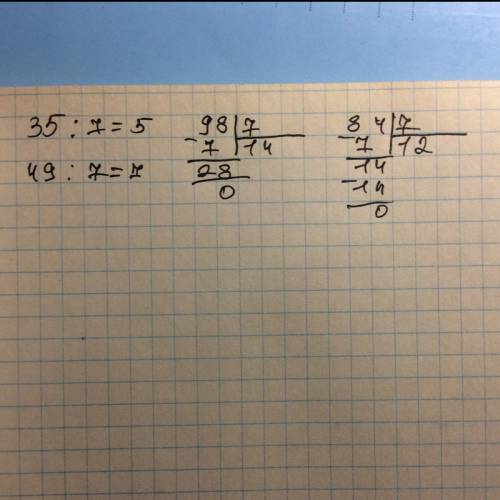 35 : 7 = 5
49 : 7 = 7
98 | 7
- 7 | 14
28
0
84 | 7
- 7 | 12
14
- 14
0